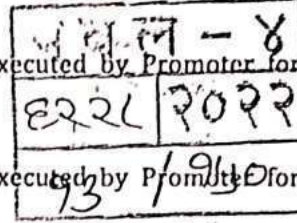 न ल - ४
xecuted by Promoter for
६२२८ २०२२
xecuted by Promoter for
१३ / १५०